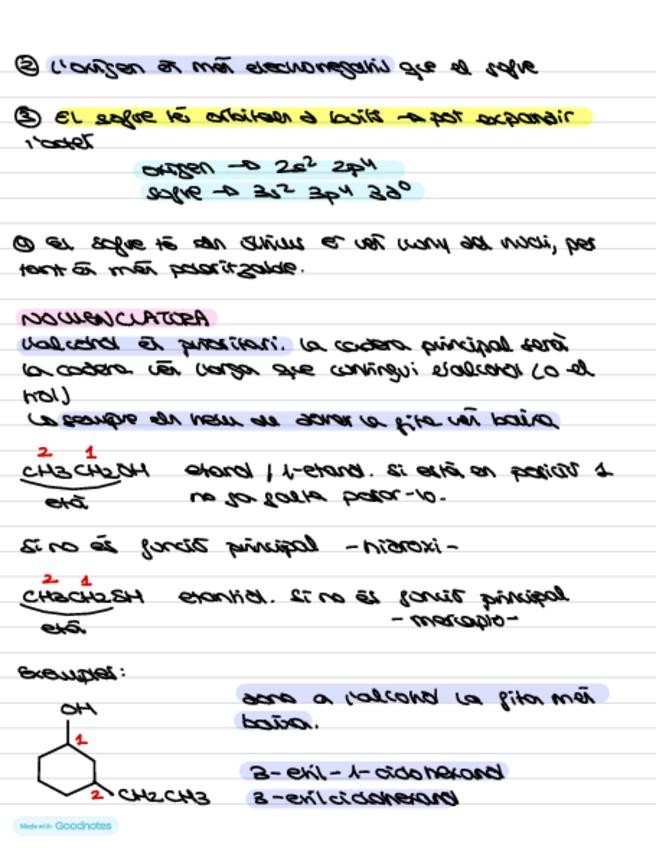 ② L'oxigen és més electronegatiu que el sofre
③ El sofre té orbitals d buits → pot expandir
l'octet
oxigen → 2s² 2p⁴
sofre → 3s² 3p⁴ 3d⁰
el sofre té els e més lluny del nucli, per
tant és més polaritzable.
NOMENCLATURA
L'alcohol és prioritari. La cadena principal serà
la cadena més llarga que contingui l'alcohol (o el
tiol)
↳ sempre els hem de donar la fita més baixa
2 1
CH3CH2OH etanol / 1-etanol. Si està en posició 1
età no fa falta posar-lo.
Si no és funció principal -hidroxi-
2 1
CH3CH2SH etantiol. Si no és funció principal
età -mercapto-
Exemples:
OH dona a l'alcohol la fita més
1 baixa.
3-etil-1-ciclohexanol
2 CH2CH3 3-etilciclohexanol
Made with Goodnotes